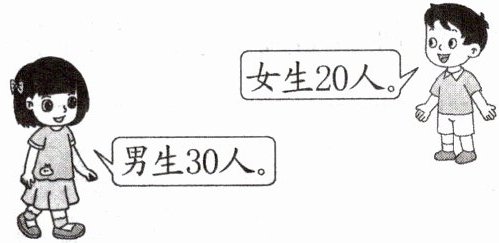 女生20人。
男生30人。